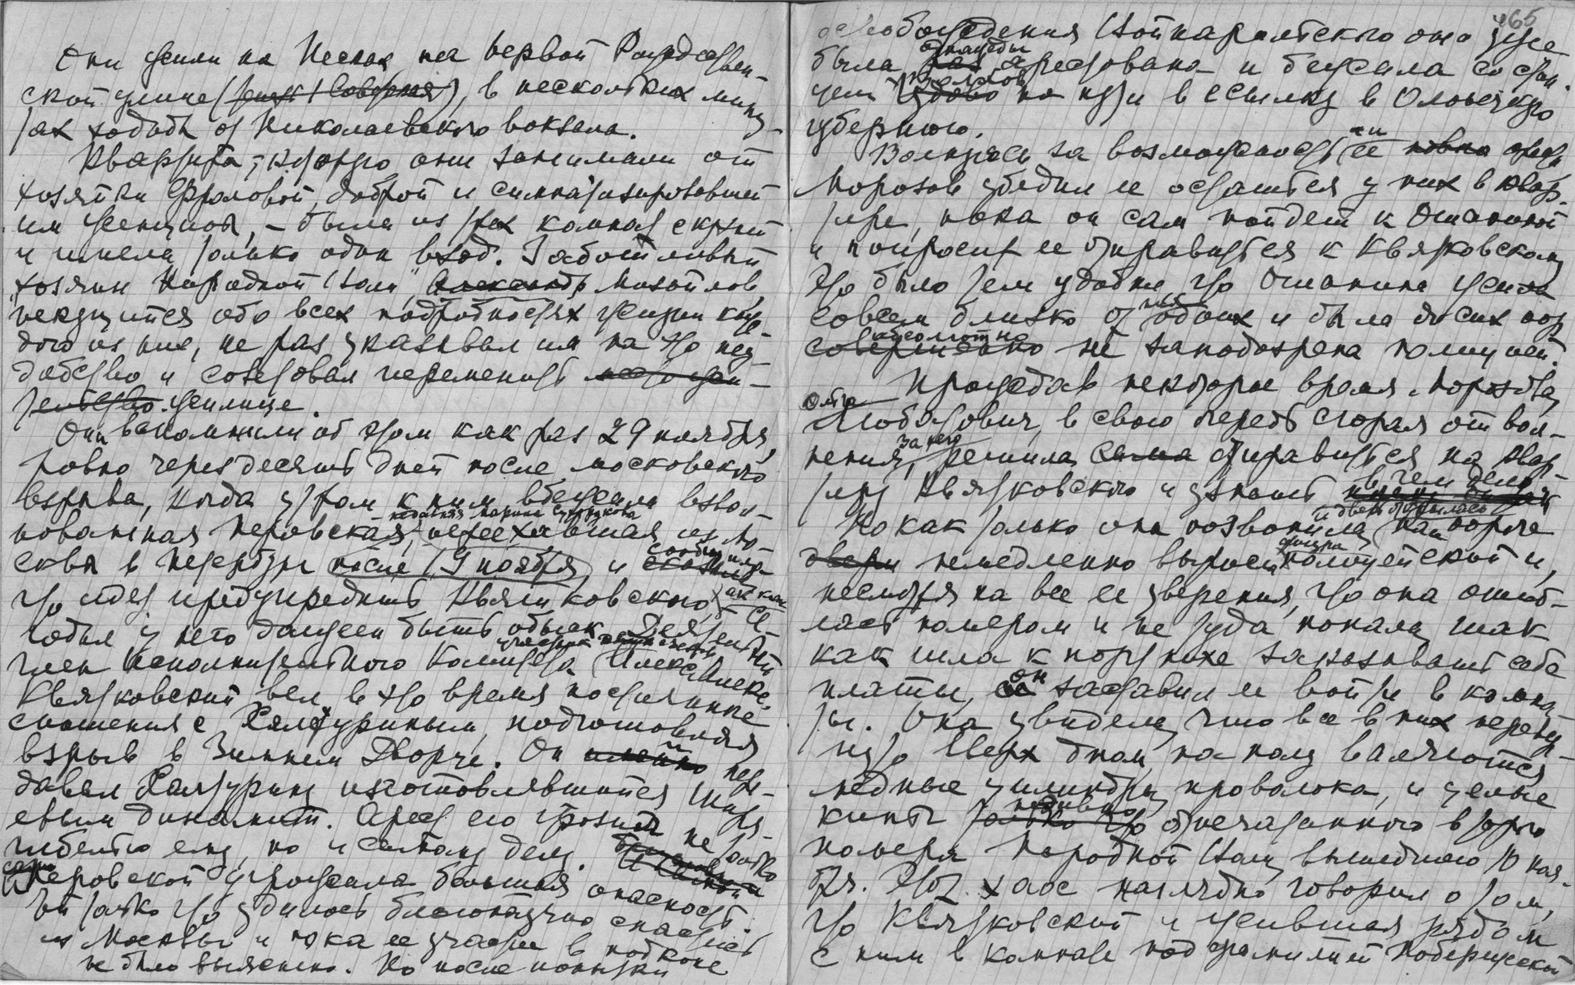 Они жили на Песках на Первой Рождествен-
ской улице, в нескольких мину-
тах ходьбы от Николаевского вокзала.
Квартира, которую они занимали от
хозяйки Фроловой, доброй и симпатизировавшей
им женщины, – была из трех комнат с кухней
и имела только один вход. Заботливый
хозяин Народной Воли, Александр Михайлов,
пекущийся обо всех подробностях жизни каж-
дого из них, не раз указывал им на это неу-
добство и советовал переменить
жилище.
Они вспомнили об этом как раз 29 ноября,
ровно через десять дней после московского
взрыва, когда утром к ним вбежала взвол-
нованная Перовская, переехавшая из Мо-
сквы в Петербург после 19 ноября, и
что идет предупредить Квятковского,
у него должен быть обыск. Деятельный
член Исполнительного Комитета Александр
Квятковский вел в это время постоянные
сношения с Халтуриным, подготовляя
взрыв в Зимнем Дворце. Он
давал Халтурину изготовлявшийся
динамит. Арест его грозил
гибелью ему, но и самому делу.
Перовской угрожала большая опасность.
Ей только что удалось благополучно спастись
из Москвы и пока ее участие в подкопе
не было выяснено. Но после попытки
465
освобождения Войнаральского она уже
была однажды арестована и бежала со стан-
ции на пути в ссылку в Олонецкую
губернию.
Волнуясь за возможность ее
Морозов убедил ее остаться у них в квар-
тире, пока он сам пойдет к Ошаниной
и попросит ее отправиться к Квятковскому
Это было тем удобнее, что Ошанина жила
совсем близко от них обоих и была до сих пор
абсолютно не заподозрена полицией.
Прождав некоторое время Морозова,
Ольга Любатович, в свою очередь сгорая от вол-
нения за него, решила отправиться на квар-
тиру Квятковского и узнать в чем дело.
Но как только она позвонила и дверь отворилась, на пороге
немедленно вырос полицейский и,
несмотря на все ее уверения, что она ошиб-
лась номером и не туда попала, так
как шла к портнихе заказывать себе
платье, он заставил ее войти в комна-
ты. Она увидела, что все в них перевер-
нуто вверх дном, на полу валяются
медные цилиндры, проволока, и целые
кипы отпечатанного
номера Народной Воли, вышедшего
Этот хаос наглядно говорил о том,
что Квятковский и жившая рядом
с ним в комнате под фамилией Побережской